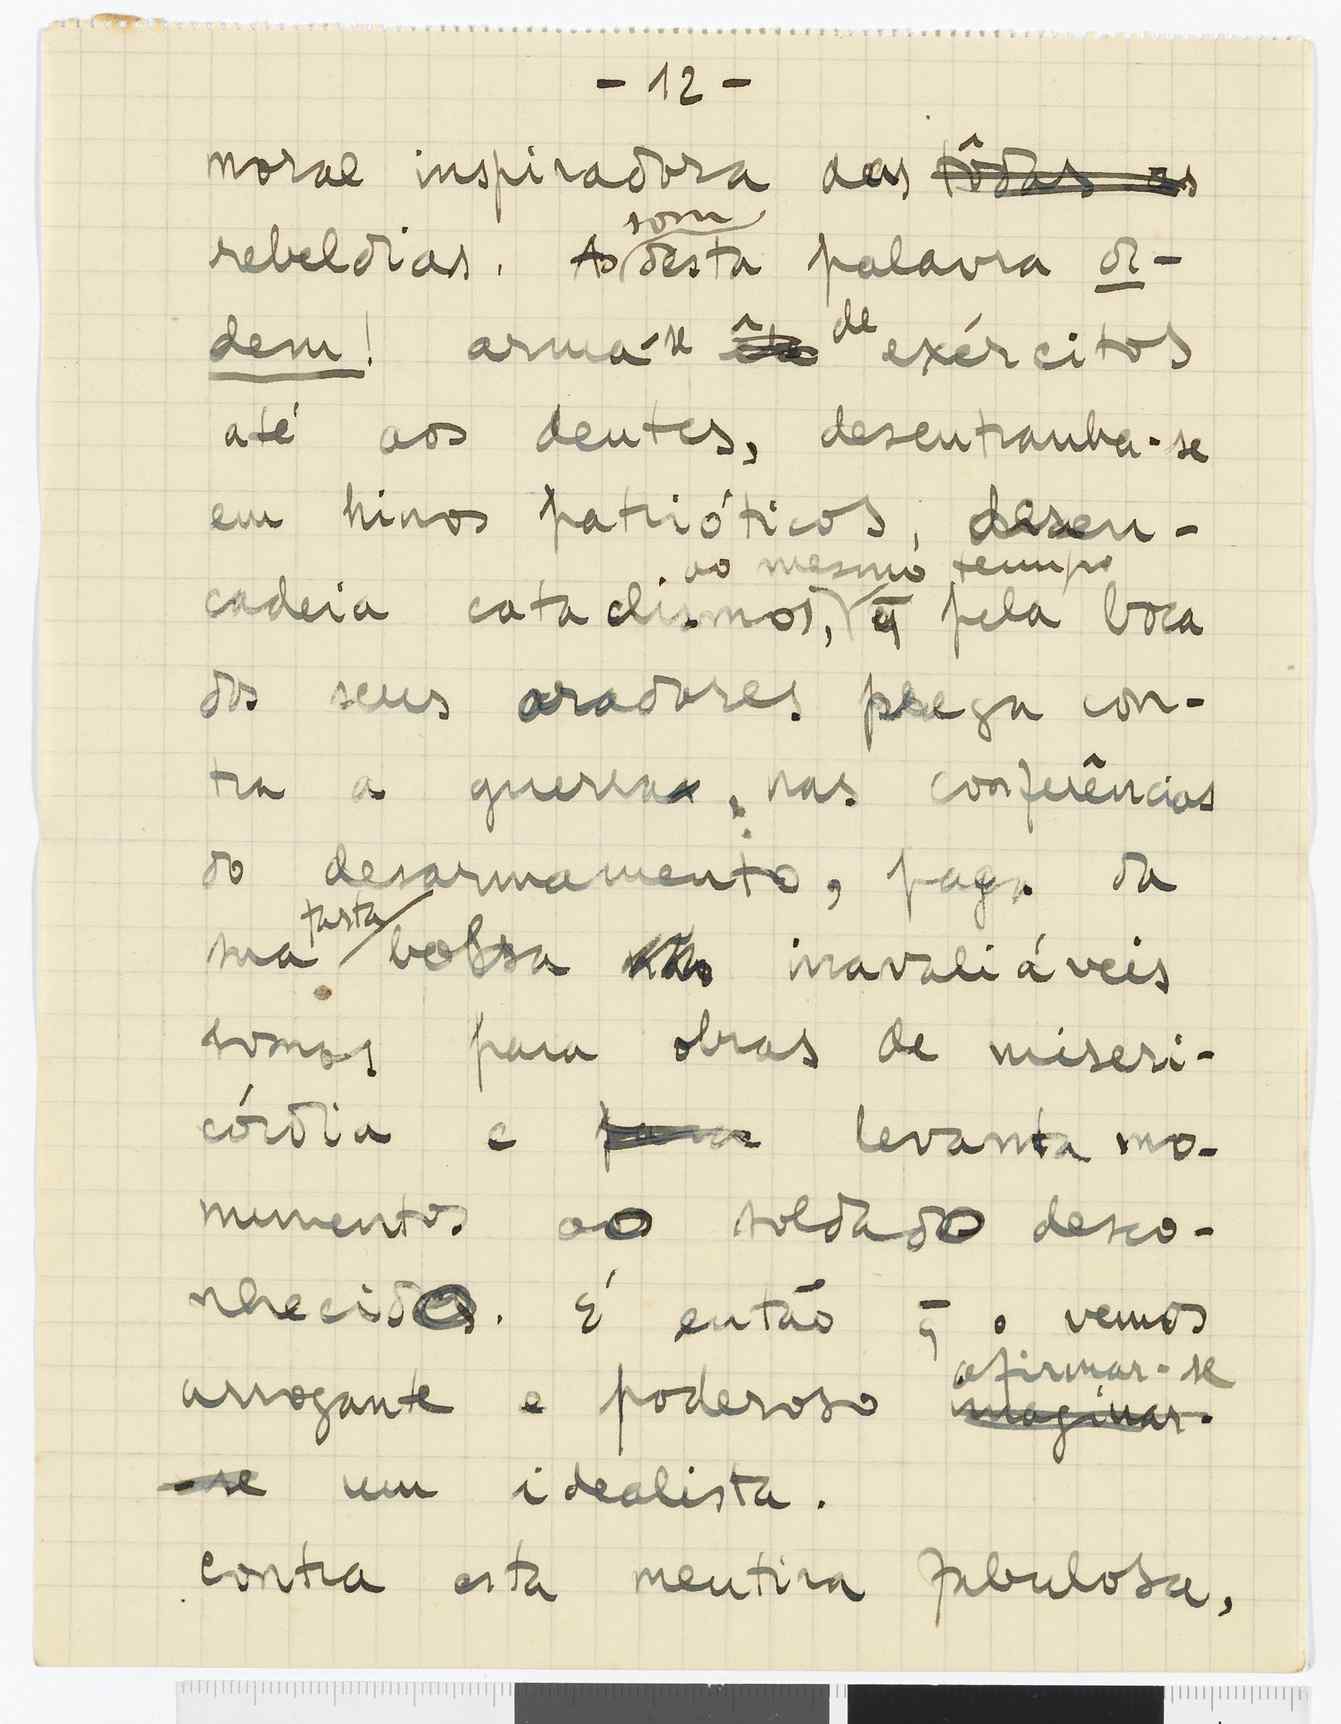 - 12 -
moral inspiradora das tôdas as
rebeldias. Ao som desta palavra or-
dem! arma-se êle de exércitos
até aos dentes, desentranha-se
em hinos patrióticos, desen-
ao mesmo tempo
cadeia cataclismos, q̄ pela boca
dos seus oradores prega con-
tra a guerra, nas conferências
do desarmamento, paga da
farta
sua bolsa inavaliáveis
somas para obras de miseri-
córdia e para levanta mo-
numentos ao soldado desco-
nhecido. É então q̄ o vemos
afirmar-se
arrogante e poderoso imaginar-
-se um idealista.
contra esta mentira fabulosa,